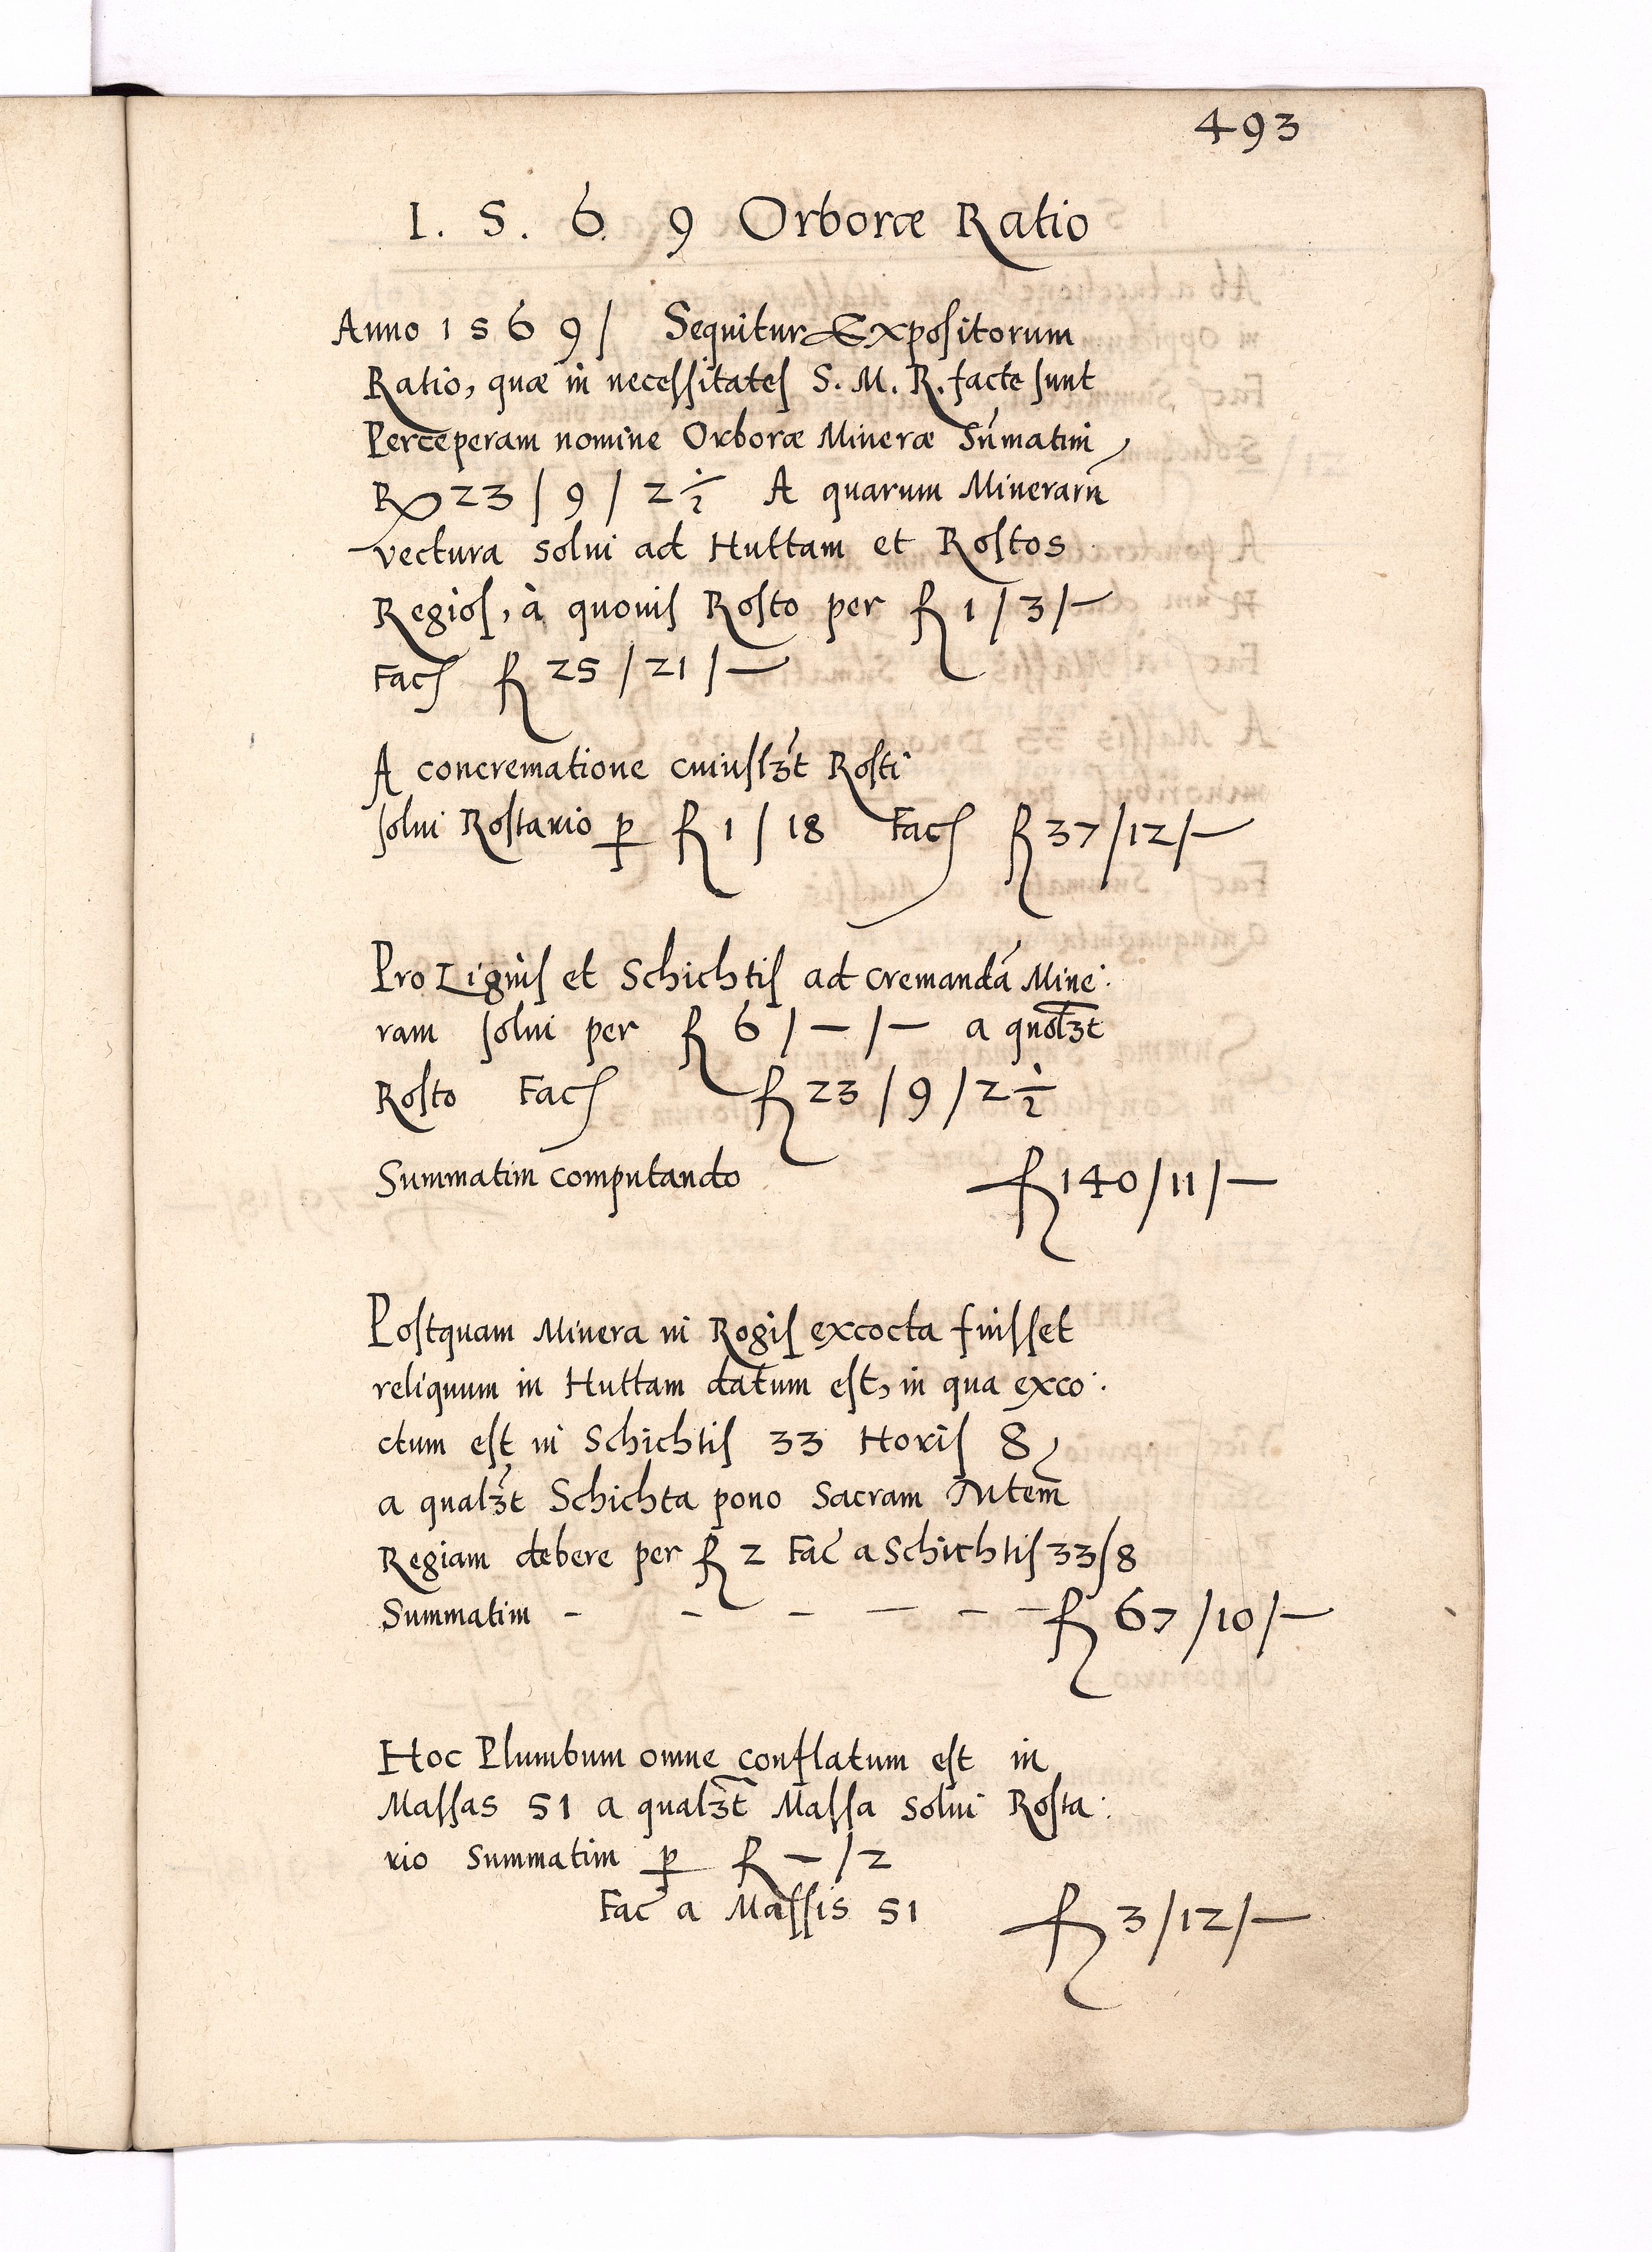 493
I. S. 6. 9 Orboræ Ratio
Anno 1569/ Sequitur Expositorum
Ratio, quæ in necessitates S. M. R. facte sunt
Perceperam nomine Orboræ Mineræ Sum̄atim
R 23 / 9 / 2 1/2 A quarum Minerarū
vectura solui ad Huttam et Rostos
Regios, à quouis Rosto per f 1 / 3 / —
Fac f 25 / 21 / —
A concrematione cuiuslꝫt Rosti
solui Rostario ꝑ f 1 / 18 Fac f 37 / 12 / —
Pro Lignis et Schichtis ad cremandā Mine:
ram solui per f 6 / — / — a quolꝫt
Rosto Fac f 23 / 9 / 2 1/2
Summatim computando f 140 / 11 / —
Postquam Minera in Rogis excocta fuisset
reliquum in Huttam datum est, in qua exco:
ctum est in Schichtis 33 Horis 8,
a qualꝫt Schichta pono Sacram Mtem̄
Regiam debere per f 2 Fac a Schichtis 33/8
Summatim - - - — - — f 67 / 10 / —
Hoc Plumbum omne conflatum est in
Massas 51 a qualꝫt Massa solui Rosta:
rio summatim ꝑ f — / 2
Fac a Massis 51 f 3 / 12 / —